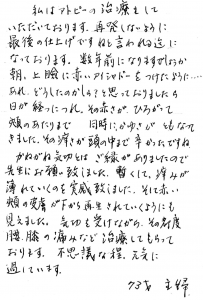 私はアトピーの治療をして
いただいております。再発しないように
最後の仕上げですねと言われる迄に
なっております。数年前になりますでしょうか
朝、上瞼に赤いアイシャドーをつけたように……
あれ、どうしたのかしら？と思っておりましたら
日が経つにつれ、その赤さが、ひろがって
頬のあたりまで 同時にかゆさが ともなって
きました。その痒さが頭の中まで辛かったですね
かねがね気功とは ご縁がありましたので
先生にお願い致しました。暫くして、痒みが
薄れていくのを実感致しました。そして赤い
頬の皮膚が下から再生されていくようにも
見えました。気功を受けながら、その都度
腰、膝の痛みなど治療してもらって
おります。不思議な程、元気に
過しています。
73才 主婦